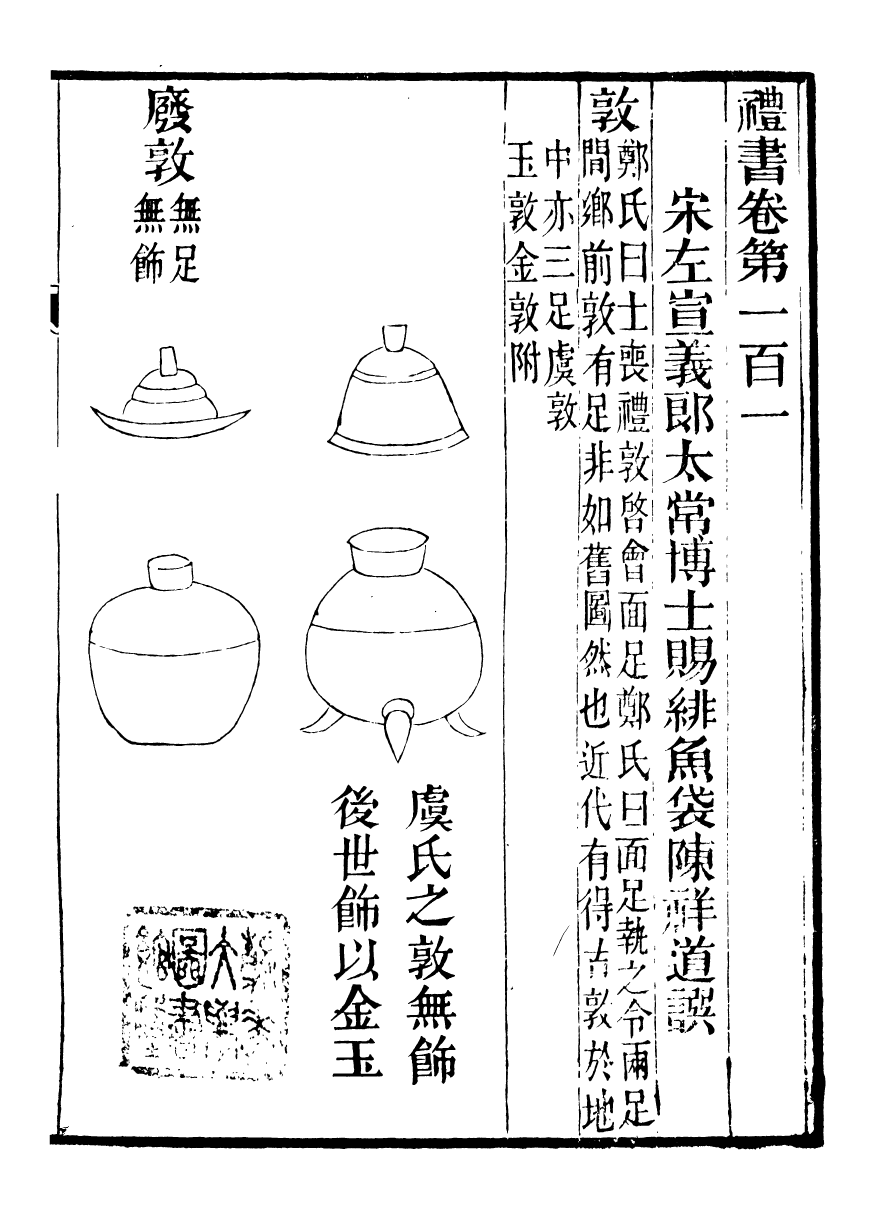 禮書卷第一百一
宋左宣義郎太常博士賜緋魚袋陳祥道譔
敦
鄭氏曰士喪禮敦啓會面足鄭氏曰面足執之令兩足
間鄉前敦有足非如舊圖然也近代有得古敦於地
中亦三足虞敦
玉敦金敦附
虞氏之敦無飾
後世飾以金玉
廢敦
無足
無飾